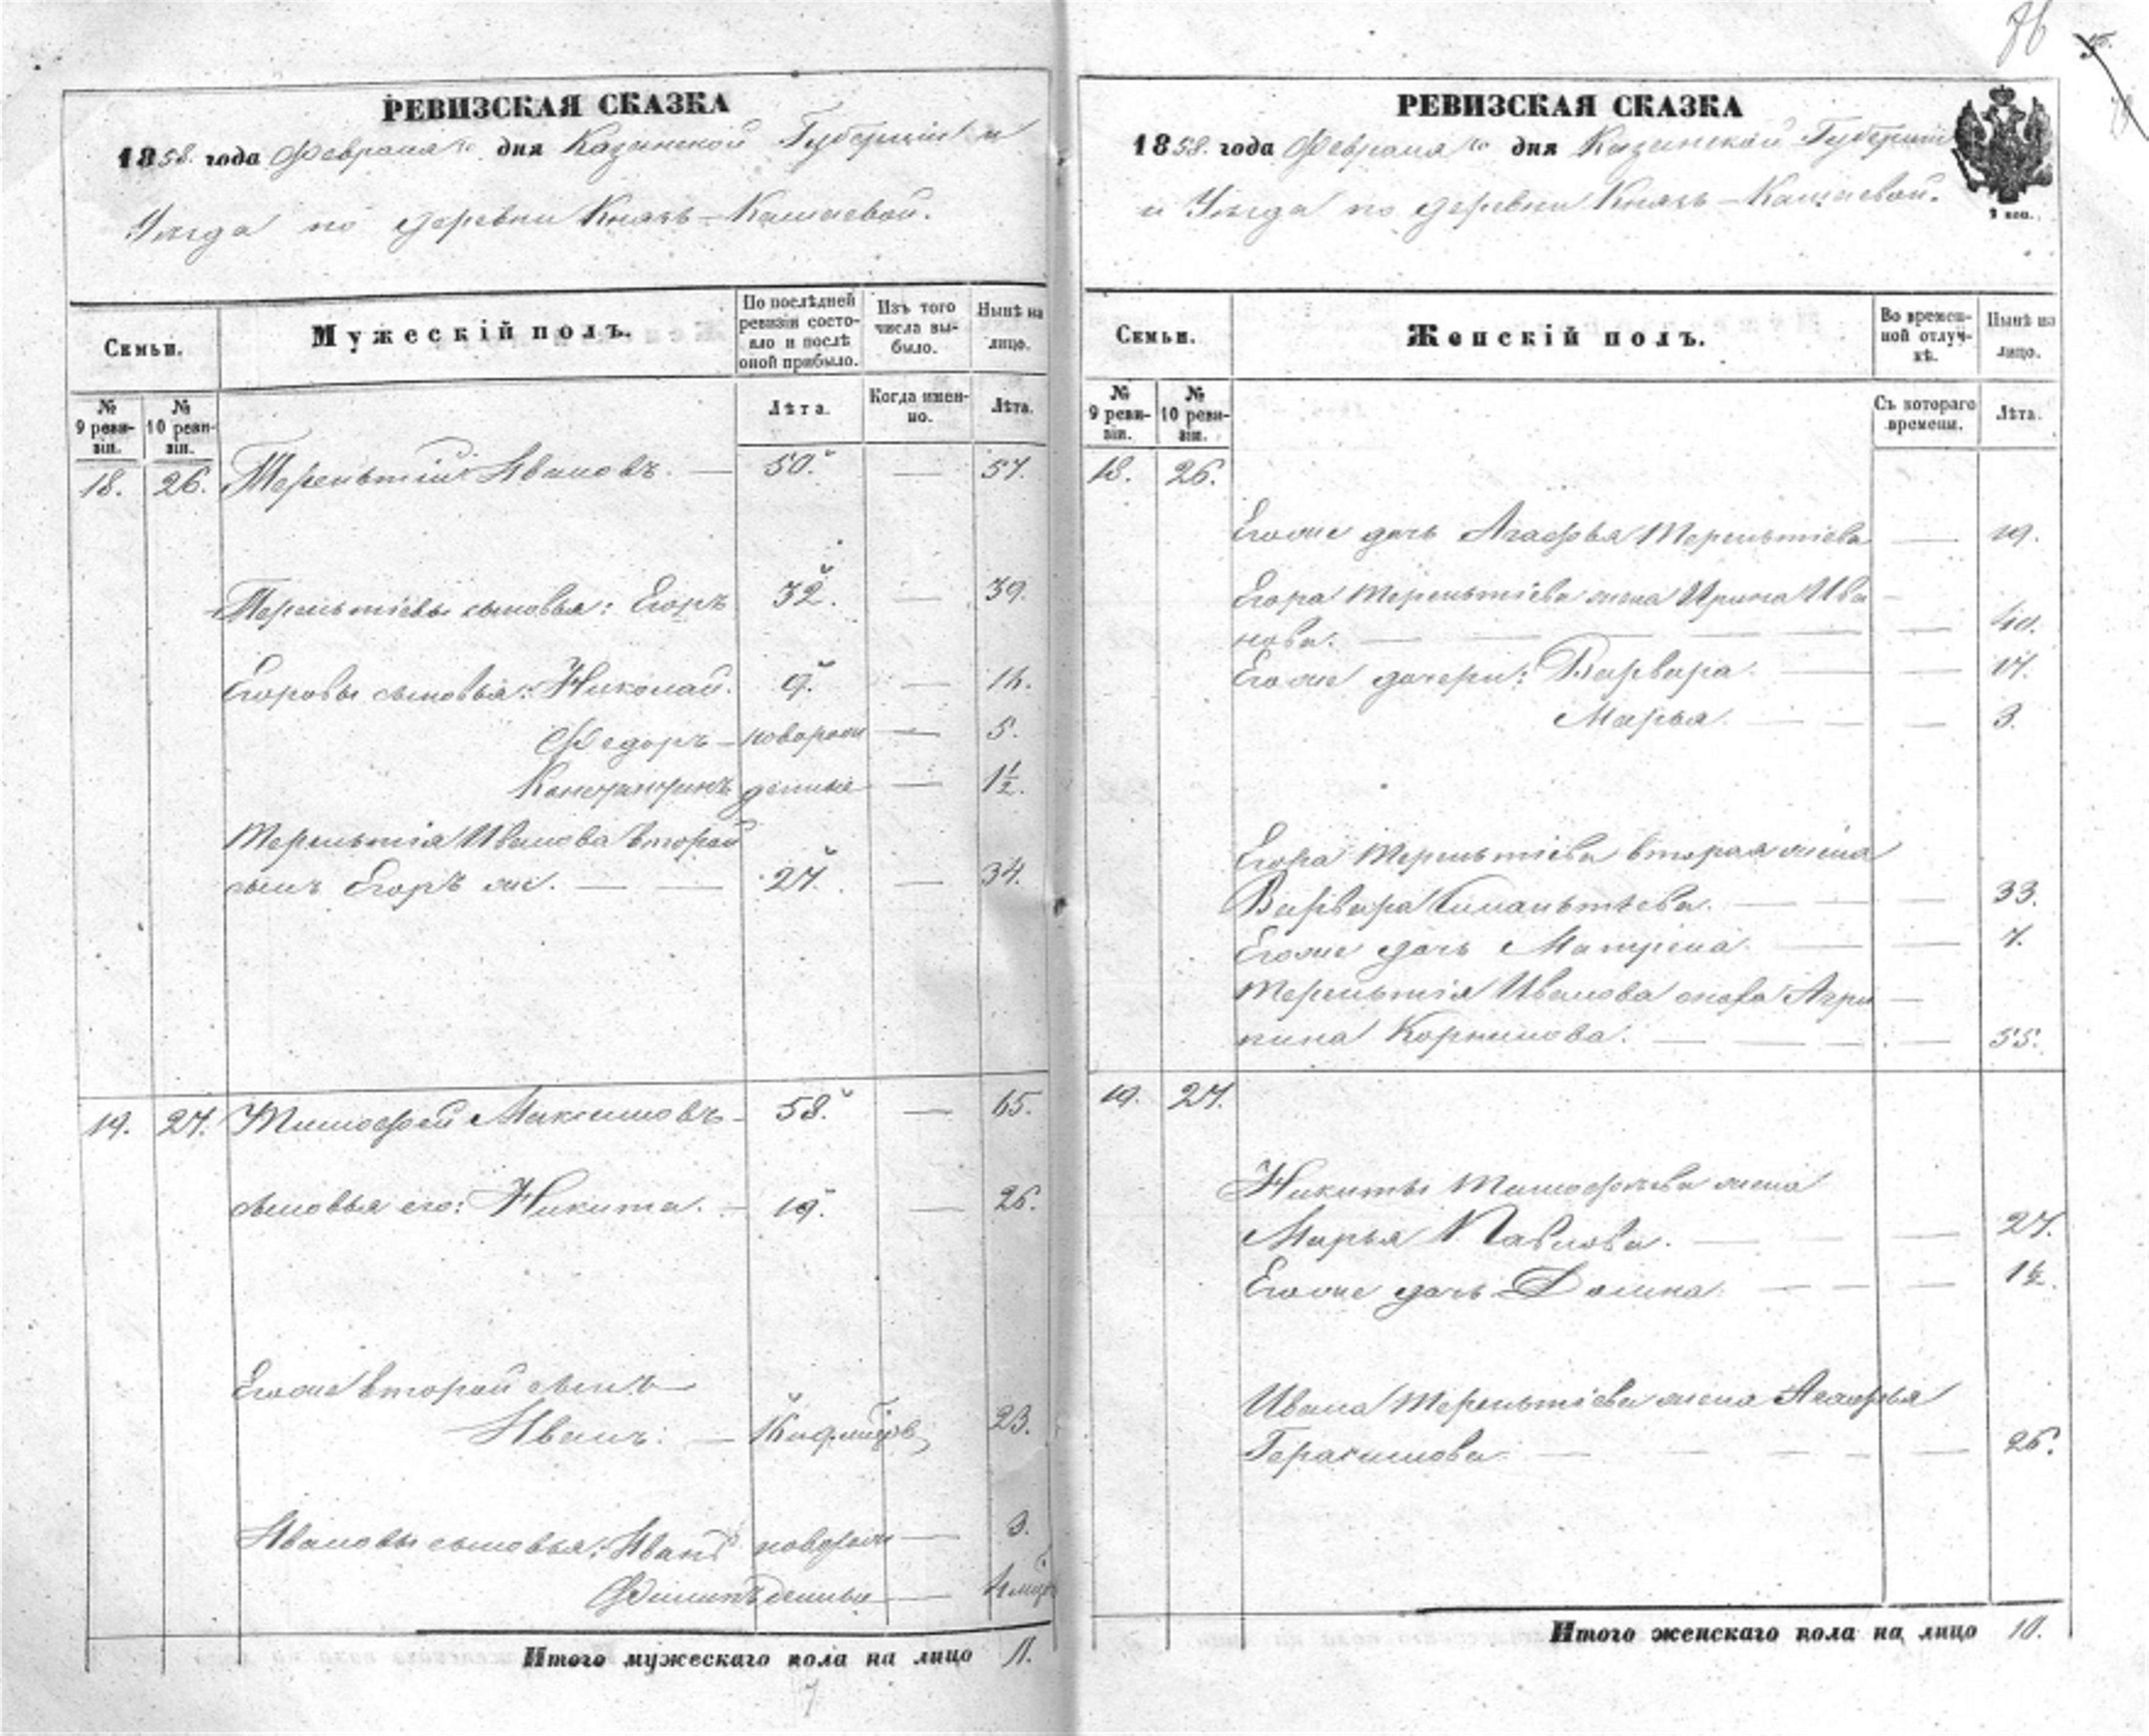 76
РЕВИЗСКАЯ СКАЗКА
1858. года Февраля дня Казанской Губерніи и
Уѣзда по деревни Князь-Камаевой.
Семьи.
Мужескій полъ.
По послѣдней ревизіи состояло и послѣ оной прибыло.
Изъ того числа выбыло.
Нынѣ на лицо.
№ 9 ревизіи.
№ 10 ревизіи.
Лѣта.
Когда именно.
Лѣта.
18. 26. Терентьтій Ивановъ. — 50. — 57.
Терентьтіевы сыновья: Егоръ 32. — 39.
Егоровы сыновья: Николай. 9. — 16.
Федоръ — новорож — 5.
Константинъ денные — 1½.
Терентьтія Иванова второй
сынъ Егоръ же. — — 27. — 34.
19. 27. Тимофей Максимовъ — 58. — 65.
сыновья его: Никита. — 19. — 26.
Егоже второй сынъ —
Иванъ. — 23.
Ивановы сыновья: Иванъ новорож — 3.
Филипъ денные —
Итого мужескаго пола на лицо 11.
РЕВИЗСКАЯ СКАЗКА
1858. года Февраля дня Казанской Губерніи
и Уѣзда по деревни Князь-Камаевой.
Семьи.
Женскій полъ.
Во временной отлучкѣ.
Нынѣ на лицо.
№ 9 ревизіи.
№ 10 ревизіи.
Съ котораго времени.
Лѣта.
18. 26.
Егоже дочь Агафья Терентьтіева — 19.
Егора Терентьтіева жена Ирина Ива —
нова. — — — — — 40.
Егоже дочери: Варвара — — 17.
Марья. — — — 3.
Егора Терентьтіева вторая жена
Варвара — — — 33.
Егоже дочь Матрена. — — 7.
Терентьтія Иванова сноха Агри —
пина Корнилова. — — — — 55.
19. 27.
Никиты Тимофеева жена
Марья Павлова. — — — 27.
Егоже дочь Домна — — — 1½.
Ивана Терентьтіева жена Агафья
Герасимова — — — — — 26.
Итого женскаго пола на лицо 10.